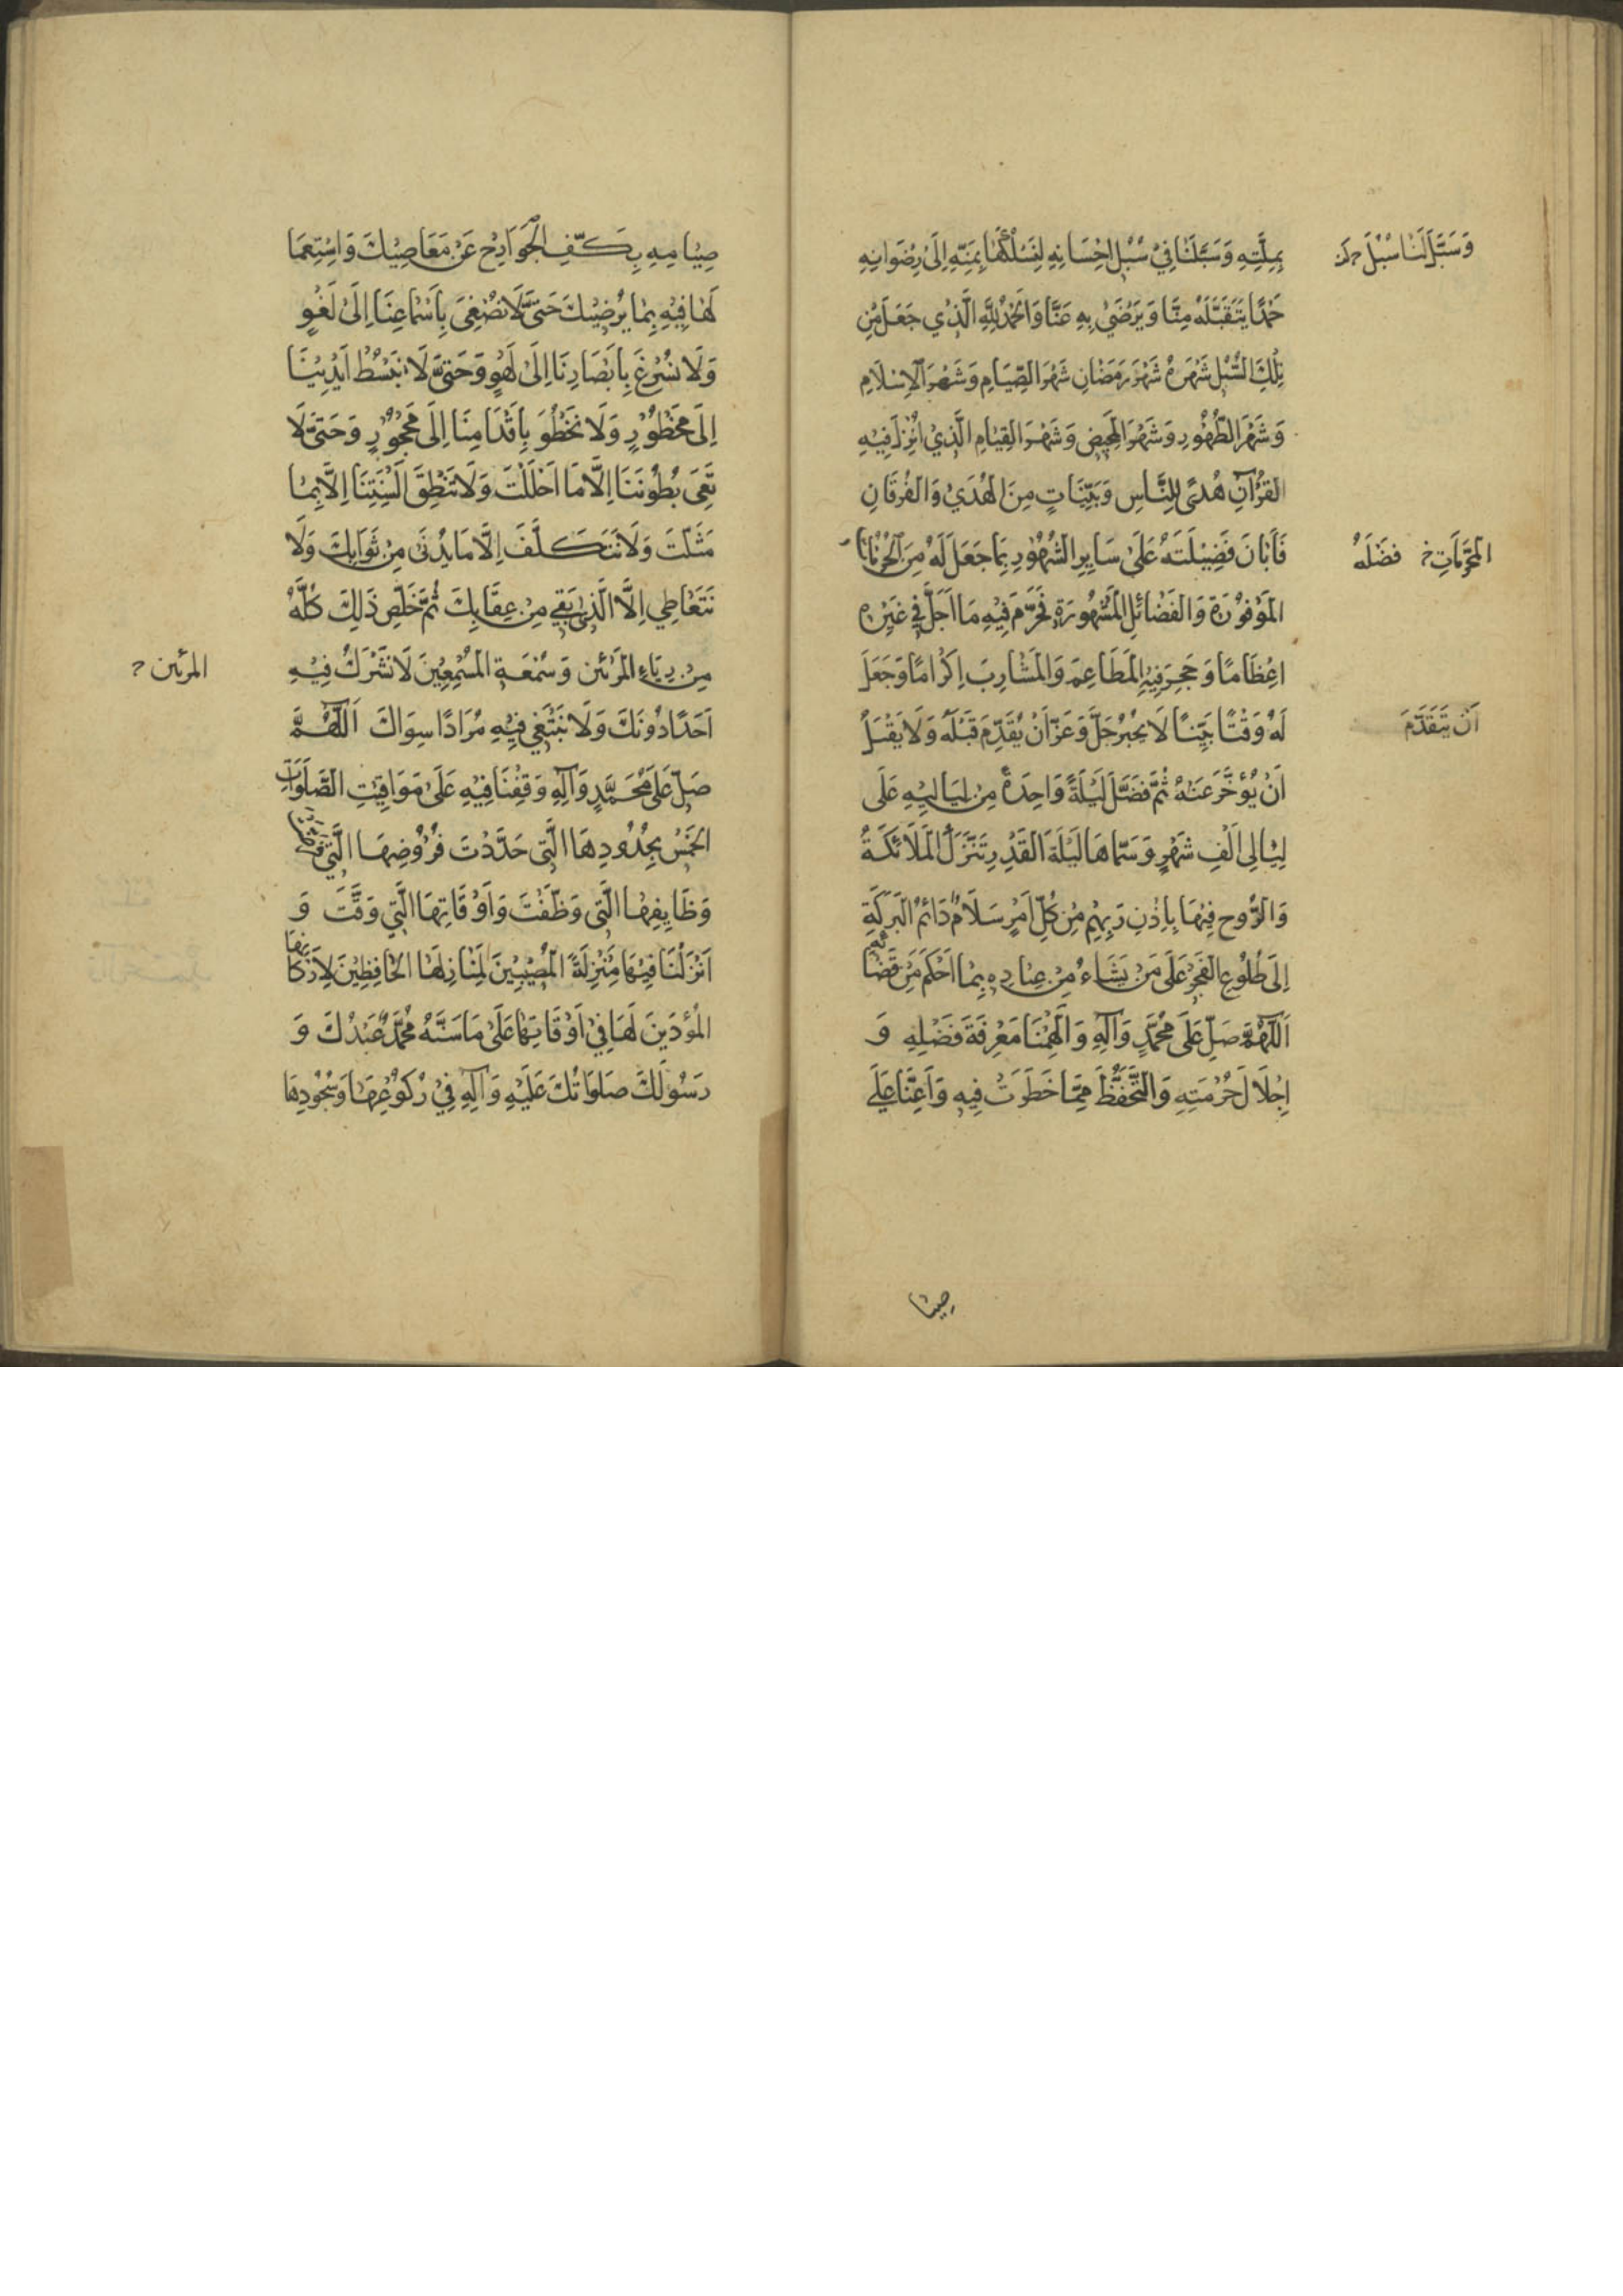 بِمِلَّتِهِ وَسَبَّلَنَا فِيْ سُبُلِ اِحْسَانِهِ لِنَسْلُكَهَا بِمَنِّهِ اِلَىٰ رِضْوَانِهِ
وَسَبَّلَ لَنَا سُبُلَ
حَمْدًا يَتَقَبَّلَهُ مِنَّا وَيَرْضَىٰ بِهِ عَنَّا وَالْحَمْدُ لِلّٰهِ الَّذِي جَعَلَ مِنْ
تِلْكَ السُّبُلِ شَهْرَهُ شَهْرَ رَمَضَانَ شَهْرَ الصِّيَامِ وَشَهْرَ الْاِسْلَامِ
وَشَهْرَ الطَّهُوْرِ وَشَهْرَ التَّمْحِيْصِ وَشَهْرَ الْقِيَامِ الَّذِيْ اُنْزِلَ فِيْهِ
الْقُرْآنُ هُدًى لِلنَّاسِ وَبَيِّنَاتٍ مِنَ الْهُدَىٰ وَالْفُرْقَانِ
فَاَبَانَ فَضِيْلَتَهُ عَلَىٰ سَايِرِ الشُّهُوْرِ بِمَا جَعَلَ لَهُ مِنَ الْحُرُمَاتِ
المُحَرَّمَاتِ خ فَضْلَهُ
الْمَوْفُوْرَةِ وَالْفَضَائِلِ الْمَشْهُورَةِ فَحَرَّمَ فِيْهِ مَا اَحَلَّ فِي غَيْرِهِ
اِعْظَامًا وَحَجَرَ فِيْهِ الْمَطَاعِمَ وَالْمَشَارِبَ اِكْرَامًا وَجَعَلَ
لَهُ وَقْتًا بَيِّنًا لَا يُجِيْزُ جَلَّ وَعَزَّ اَنْ يُقَدَّمَ قَبْلَهُ وَلَا يَقْبَلُ
اَنْ يَتَقَدَّمَ
اَنْ يُؤَخَّرَ عَنْهُ ثُمَّ فَضَّلَ لَيْلَةً وَاحِدَةً مِنْ لَيَالِيْهِ عَلَى
لَيَالِي اَلْفِ شَهْرٍ وَسَمَّاهَا لَيْلَةَ الْقَدْرِ تَنَزَّلُ الْمَلَائِكَةُ
وَالرُّوْحُ فِيْهَا بِاِذْنِ رَبِّهِمْ مِنْ كُلِّ اَمْرٍ سَلَامٌ دَائِمُ الْبَرَكَةِ
اِلَىٰ طُلُوْعِ الْفَجْرِ عَلَىٰ مَنْ يَشَاءُ مِنْ عِبَادِهِ بِمَا اَحْكَمَ مِنْ قَضَائِهِ
اَللّٰهُمَّ صَلِّ عَلَىٰ مُحَمَّدٍ وَآلِهِ وَاَلْهِمْنَا مَعْرِفَةَ فَضْلِهِ وَ
اِجْلَالَ حُرْمَتِهِ وَالتَّحَفُّظَ مِمَّا حَظَرْتَ فِيْهِ وَاَعِنَّا عَلَى
صِيَا
صِيَامِهِ بِكَفِّ الْجَوَارِحِ عَنْ مَعَاصِيْكَ وَاسْتِعْمَا
لِهَا فِيْهِ بِمَا يُرْضِيْكَ حَتّىٰ لَا نُصْغِيَ بِاَسْمَاعِنَا اِلَىٰ لَغْوٍ
وَلَا نُسْرِعَ بِاَبْصَارِنَا اِلَىٰ لَهْوٍ وَحَتّىٰ لَا نَبْسُطَ اَيْدِيَنَا
اِلَىٰ مَحْظُوْرٍ وَلَا نَخْطُوَ بِاَقْدَامِنَا اِلَىٰ مَحْجُوْرٍ وَحَتّىٰ لَا
تَعِيَ بُطُوْنَنَا اِلَّا مَا اَحْلَلْتَ وَلَا تَنْطِقَ اَلْسِنَتُنَا اِلَّا بِمَا
مَثَّلْتَ وَلَا نَتَكَلَّفَ اِلَّا مَا يُدْنِي مِنْ ثَوَابِكَ وَلَا
نَتَعَاطِي اِلَّا الَّذِي يَقِي مِنْ عِقَابِكَ ثُمَّ خَلِّصْ ذَلِكَ كُلَّهُ
مِنْ رِيَاءِ الْمُرَئِيْنَ وَسُمْعَةِ الْمُسْمِعِيْنَ لَا نَشْرَكُ فِيْهِ
المرئين
اَحَدًا دُوْنَكَ وَلَا نَبْتَغِي فِيْهِ مُرَادًا سِوَاكَ اَللّٰهُمَّ
صَلِّ عَلَىٰ مُحَمَّدٍ وَآلِهِ وَقِفْنَا فِيْهِ عَلَىٰ مَوَاقِيْتِ الصَّلَوَاتِ
الْخَمْسِ بِحُدُوْدِهَا الَّتِي حَدَّدْتَ وَفُرُوْضِهَا الَّتِي
وَظَايِفِهَا الَّتِي وَظَّفْتَ وَاَوْقَاتِهَا الَّتِي وَقَّتَّ وَ
اَنْزِلْنَا فِيْهَا مَنْزِلَةَ الْمُصِيْبِيْنَ لِمَنَازِلِهَا الْحَافِظِيْنَ لِاَرْكَانِهَا
الْمُؤَدِّيْنَ لَهَا فِيْ اَوْقَاتِهَا عَلَىٰ مَا سَنَّهُ مُحَمَّدٌ عَبْدُكَ وَ
رَسُوْلُكَ صَلَوَاتُكَ عَلَيْهِ وَآلِهِ فِيْ رُكُوْعِهَا وَسُجُوْدِهَا